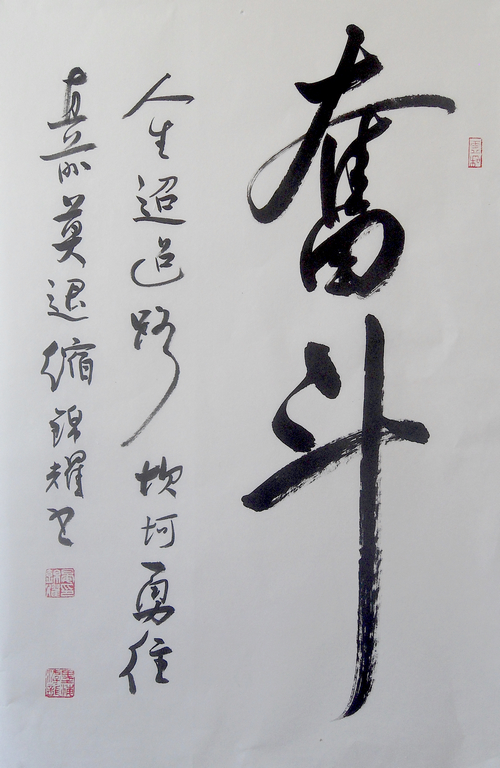 奋斗
人生迢迢路坎坷勇往
直前莫退缩锦耀书